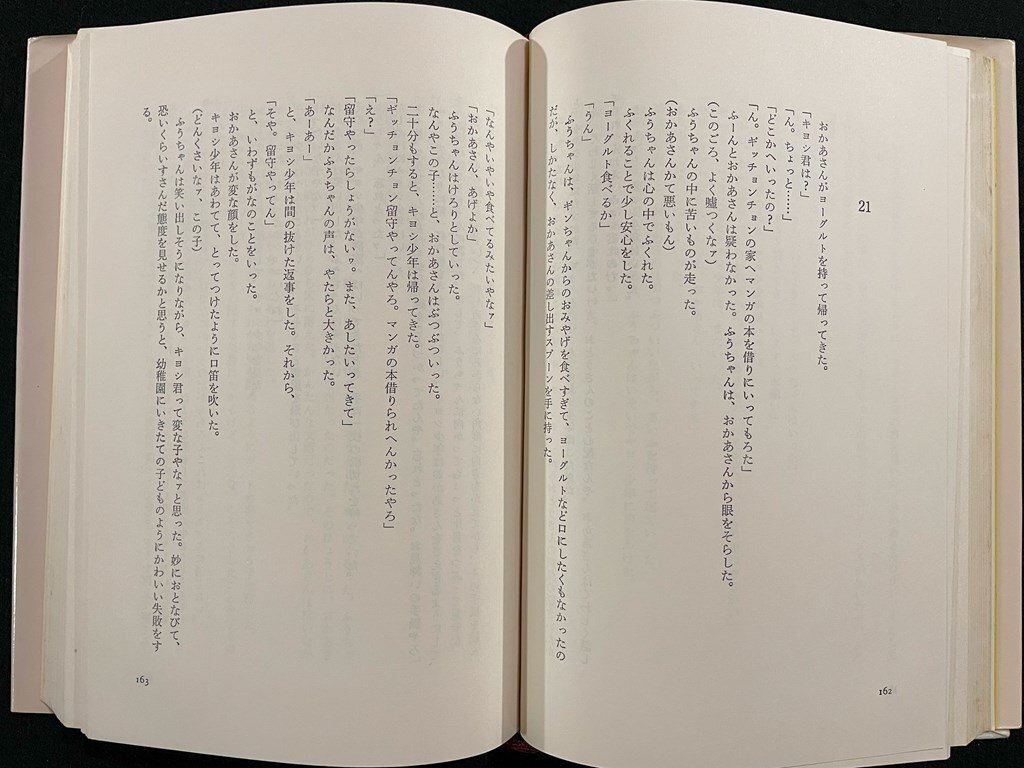 21
おかあさんがヨーグルトを持って帰ってきた。
「キヨシ君は？」
「ん。ちょっと……」
「どこかへいったの？」
「ん。ギッチョンチョンの家へマンガの本を借りにいってもろた」
ふーんとおかあさんは疑わなかった。ふうちゃんは、おかあさんから眼をそらした。
（このごろ、よく嘘つくなァ）
ふうちゃんの中に苦いものが走った。
（おかあさんかて悪いもん）
ふうちゃんは心の中でふくれた。
ふくれることで少し安心をした。
「ヨーグルト食べるか」
「うん」
ふうちゃんは、ギンちゃんからのおみやげを食べすぎて、ヨーグルトなど口にしたくもなかったの
だが、しかたなく、おかあさんの差し出すスプーンを手に持った。
162
「なんやいやいや食べてるみたいやなァ」
「おかあさん、あげよか」
ふうちゃんはけろりとしていった。
なんやこの子……と、おかあさんはぶつぶついった。
二十分もすると、キヨシ少年は帰ってきた。
「ギッチョンチョン留守やってんやろ。マンガの本借りられへんかったやろ」
「え？」
「留守やったらしょうがないヮ。また、あしたいってきて」
なんだかふうちゃんの声は、やたらと大きかった。
「あーあー」
と、キヨシ少年は間の抜けた返事をした。それから、
「そや。留守やってん」
と、いわずもがなのことをいった。
おかあさんが変な顔をした。
キヨシ少年はあわてて、とってつけたように口笛を吹いた。
（どんくさいなァ、この子）
ふうちゃんは笑い出しそうになりながら、キヨシ君って変な子やなァと思った。妙におとなびて、
恐いくらいすさんだ態度を見せるかと思うと、幼稚園にいきたての子どものようにかわいい失敗をす
る。
163